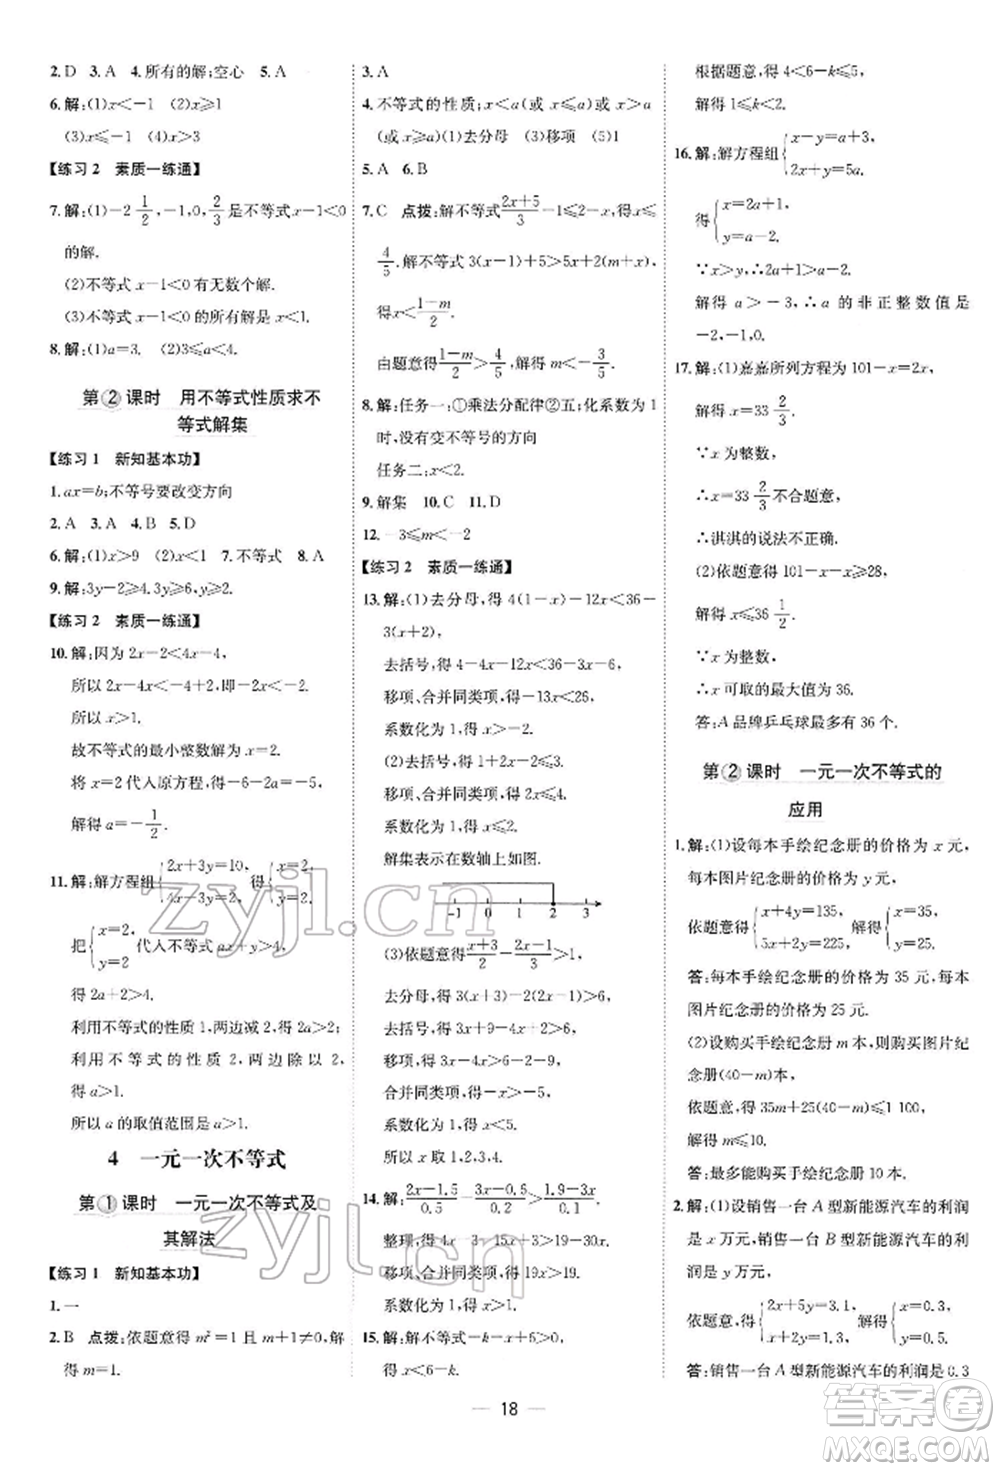 2. D 3. A 4. 所有的解;空心 5. A
6. 解:(1)x<-1 (2)x≥1
(3)x≤-1 (4)x>3
【练习2 素质一练通】
7. 解:(1)-2 1/2,-1,0,2/3是不等式x-1<0
的解.
(2)不等式x-1<0有无数个解.
(3)不等式x-1<0的所有解是x<1.
8. 解:(1)a=3. (2)3≤a<4.
第②课时 用不等式性质求不
等式解集
【练习1 新知基本功】
1. ax=b;不等号要改变方向
2. A 3. A 4. B 5. D
6. 解:(1)x>9 (2)x<6 7. 不等式 8. A
9. 解:3y-2≥4.3y≥6,y≥2.
【练习2 素质一练通】
10. 解:因为2x-2<4x-4,
所以2x-4x<-4+2,即-2x<-2,
所以x>1.
故不等式的最小整数解为x=2.
将x=2代入原方程,得-6-2a=-5,
解得a=-1/2.
11. 解:解方程组{2x+3y=10,4x-3y=2, 得{x=2,y=2.
把{x=2,y=2 代入不等式ax+y>4,
得2a+2>4.
利用不等式的性质1,两边减2,得2a>2;
利用不等式的性质2,两边除以2,
得a>1.
所以a的取值范围是a>1.
4 一元一次不等式
第①课时 一元一次不等式及
其解法
【练习1 新知基本功】
1. 一
2. B 点拨:依题意得m²=1且m+1≠0,解
得m=1.
3. A
4. 不等式的性质;x<a(或x≤a)或x>a
(或x≥a)(1)去分母 (3)移项 (5)1
5. A 6. B
7. C 点拨:解不等式(2x+5)/3-1≤2-x,得x≤
4/5.解不等式3(x-1)+5>5x+2(m+x),
得x<(1-m)/2.
由题意得(1-m)/2>4/5,解得m<-3/5.
8. 解:任务一:①乘法分配律②五;化系数为1
时,没有变不等号的方向
任务二:x<2.
9. 解集 10. C 11. D
12. -3≤m<-2
【练习2 素质一练通】
13. 解:(1)去分母,得4(1-x)-12x<36-
3(x+2),
去括号,得4-4x-12x<36-3x-6,
移项、合并同类项,得-13x<26,
系数化为1,得x>-2.
(2)去括号,得2x-11<4x-20+5,
移项、合并同类项,得-2x<-4,
系数化为1,得x>2.
解集表示在数轴上如图.
-1 0 1 2 3
(3)依题意得(x+3)/2-(2x-1)/3>1,
去分母,得3(x+3)-2(2x-1)>6,
去括号,得3x+9-4x+2>6,
移项,得3x-4x>6-2-9,
合并同类项,得-x>-5,
系数化为1,得x<5.
所以x取1,2,3,4.
14. 解:(2x-1.5)/0.5-(3x-0.5)/0.2>(1.9-3x)/0.1,
整理,得4x-3-15x+2.5>19-30x,
移项、合并同类项,得19x>19.
系数化为1,得x>1.
15. 解:解不等式-k-x+6>0,
得x<6-k.
根据题意,得4<6-k≤5,
解得1≤k<2.
16. 解:解方程组{x-y=a+3,2x+y=5a,
得{x=2a+1,y=a-2.
∵x>y,∴2a+1>a-2.
解得a>-3,∴a的非正整数值是
-2,-1,0.
17. 解:(1)嘉嘉所列方程为101-x=2x,
解得x=33 2/3.
∵x为整数,
∴x=33 2/3不合题意,
∴淇淇的说法不正确.
(2)依题意得101-x-x≥28,
解得x≤36 1/2.
∵x为整数,
∴x可取的最大值为36.
答:A品牌乒乓球最多有36个.
第②课时 一元一次不等式的
应用
1. 解:(1)设每本手绘纪念册的价格为x元,
每本图片纪念册的价格为y元,
依题意得{x+4y=135,5x+2y=225, 解得{x=35,y=25.
答:每本手绘纪念册的价格为35元,每本
图片纪念册的价格为25元.
(2)设购买手绘纪念册m本,则购买图片纪
念册(40-m)本,
依题意,得35m+25(40-m)≤1 100,
解得m≤10.
答:最多能购买手绘纪念册10本.
2. 解:(1)设销售一台A型新能源汽车的利润
是x万元,销售一台B型新能源汽车的利
润是y万元,
依题意,得{2x+5y=3.1,x+2y=1.3, 解得{x=0.3,y=0.5.
答:销售一台A型新能源汽车的利润是0.3
18
zyjl.cn
zyjl.cn
答案圈
MXQE.COM